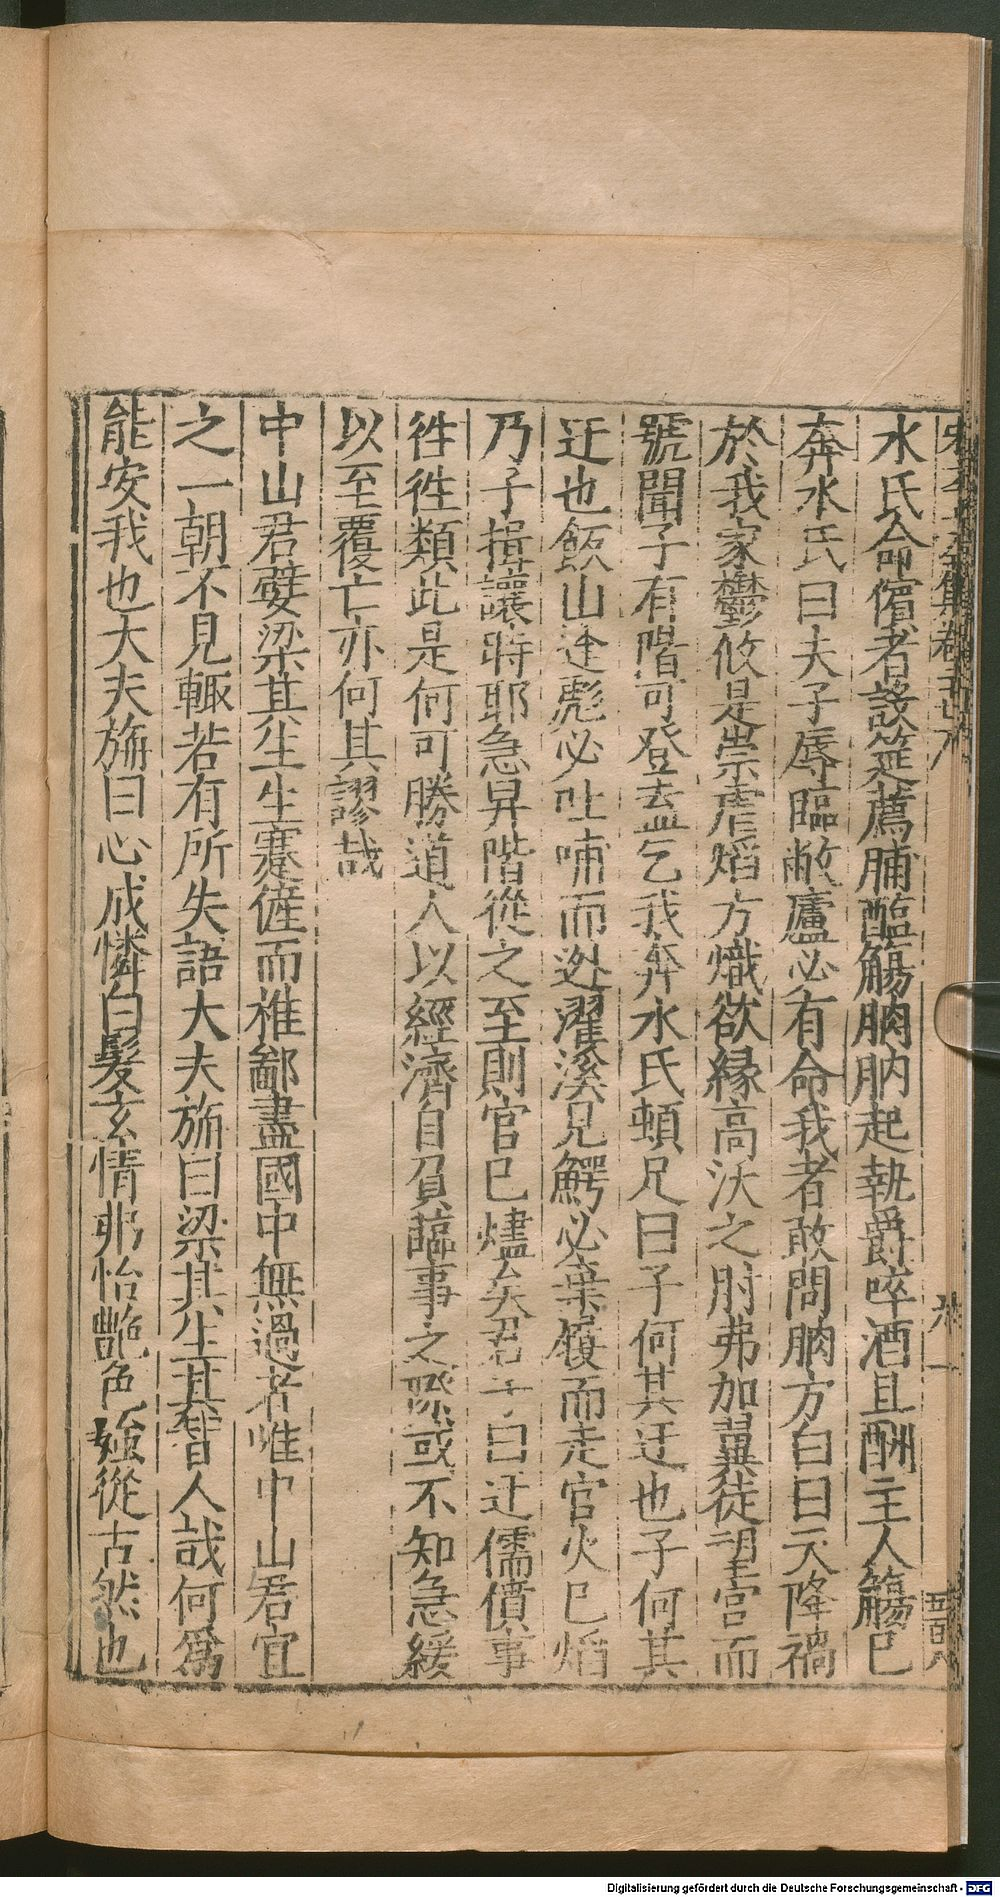 水氏命儐者設筵薦脯醢觴朒朒起執爵啐酒且酬主人觴巳
奔水氏曰夫子辱臨敝廬必有命我者敢問朒方白曰天降禍
於我家鬱攸是崇虐熖方熾欲緣高沃之肘弗加翼徒望宫而
號聞子有階可登盍乞我奔水氏頓足曰子何其迂也子何其
迂也飯山逢彪必吐哺而逃濯溪見鰐必棄履而走宫火巳熖
乃子揖讓時耶急舁階從之至則宫巳燼矣君子曰迂儒僨事
徃徃類此是何可勝道人以經濟自負臨事之際或不知急緩
以至覆亡亦何其謬哉
中山君嬖梁其生生蹇僿而椎鄙盡國中無過者惟中山君宜
之一朝不見輙若有所失語大夫旃曰梁其生其智人哉何爲
能安我也大夫旃曰心成憐白髮玄情弗怡艶色媸從古然也
Digitalisierung gefördert durch die Deutsche Forschungsgemeinschaft - DFG